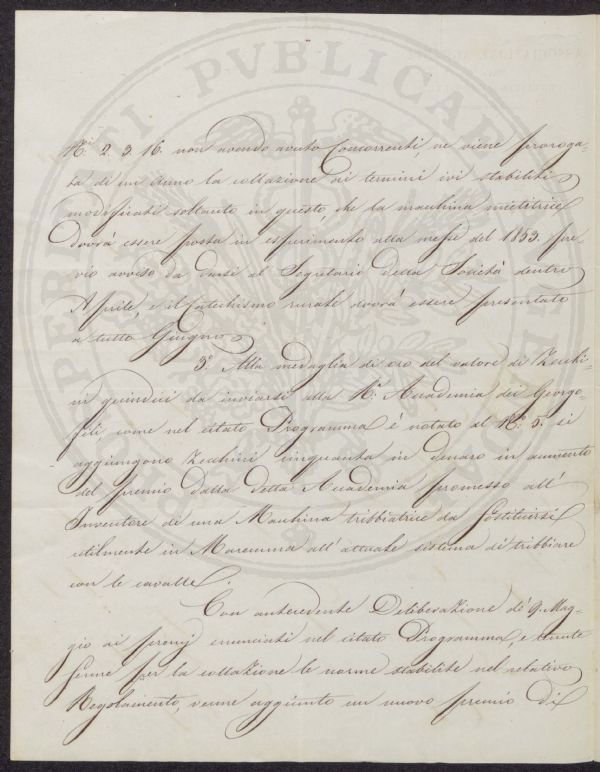 Nⁱ 2. 3. 16. non avendo avuto Concorrenti, ne viene proroga-
ta di un Anno la collazione ai termini ivi stabiliti
modificati soltanto in questo, che la macchina mietitrice
dovrà essere posta in esperimento alla messe del 1853. pre-
vio avviso da darsi al Segretario della Società dentro
Aprile, e il Catechismo rurale dovrà essere presentato
a tutto Giugno.
3.° Alla medaglia di oro del valore di Zecchi-
ni quindici da inviarsi alla R. Accademia dei Georgo-
fili, come nel citato Programma è notato al N. 5. si
aggiungono Zecchini cinquanta in denaro in aumento
del premio dalla detta Accademia promesso all'
Inventore di una Macchina tribbiatrice da sostituirsi
utilmente in Maremma all'attuale sistema di tribbiare
con le cavalle.
Con antecedente Deliberazione di 9. Mag-
gio ai premj enunciati nel citato Programma, e tenute
ferme per la collazione le norme stabilite nel relativo
Regolamento, venne aggiunto un nuovo premio di
PERITI PVBLICAE